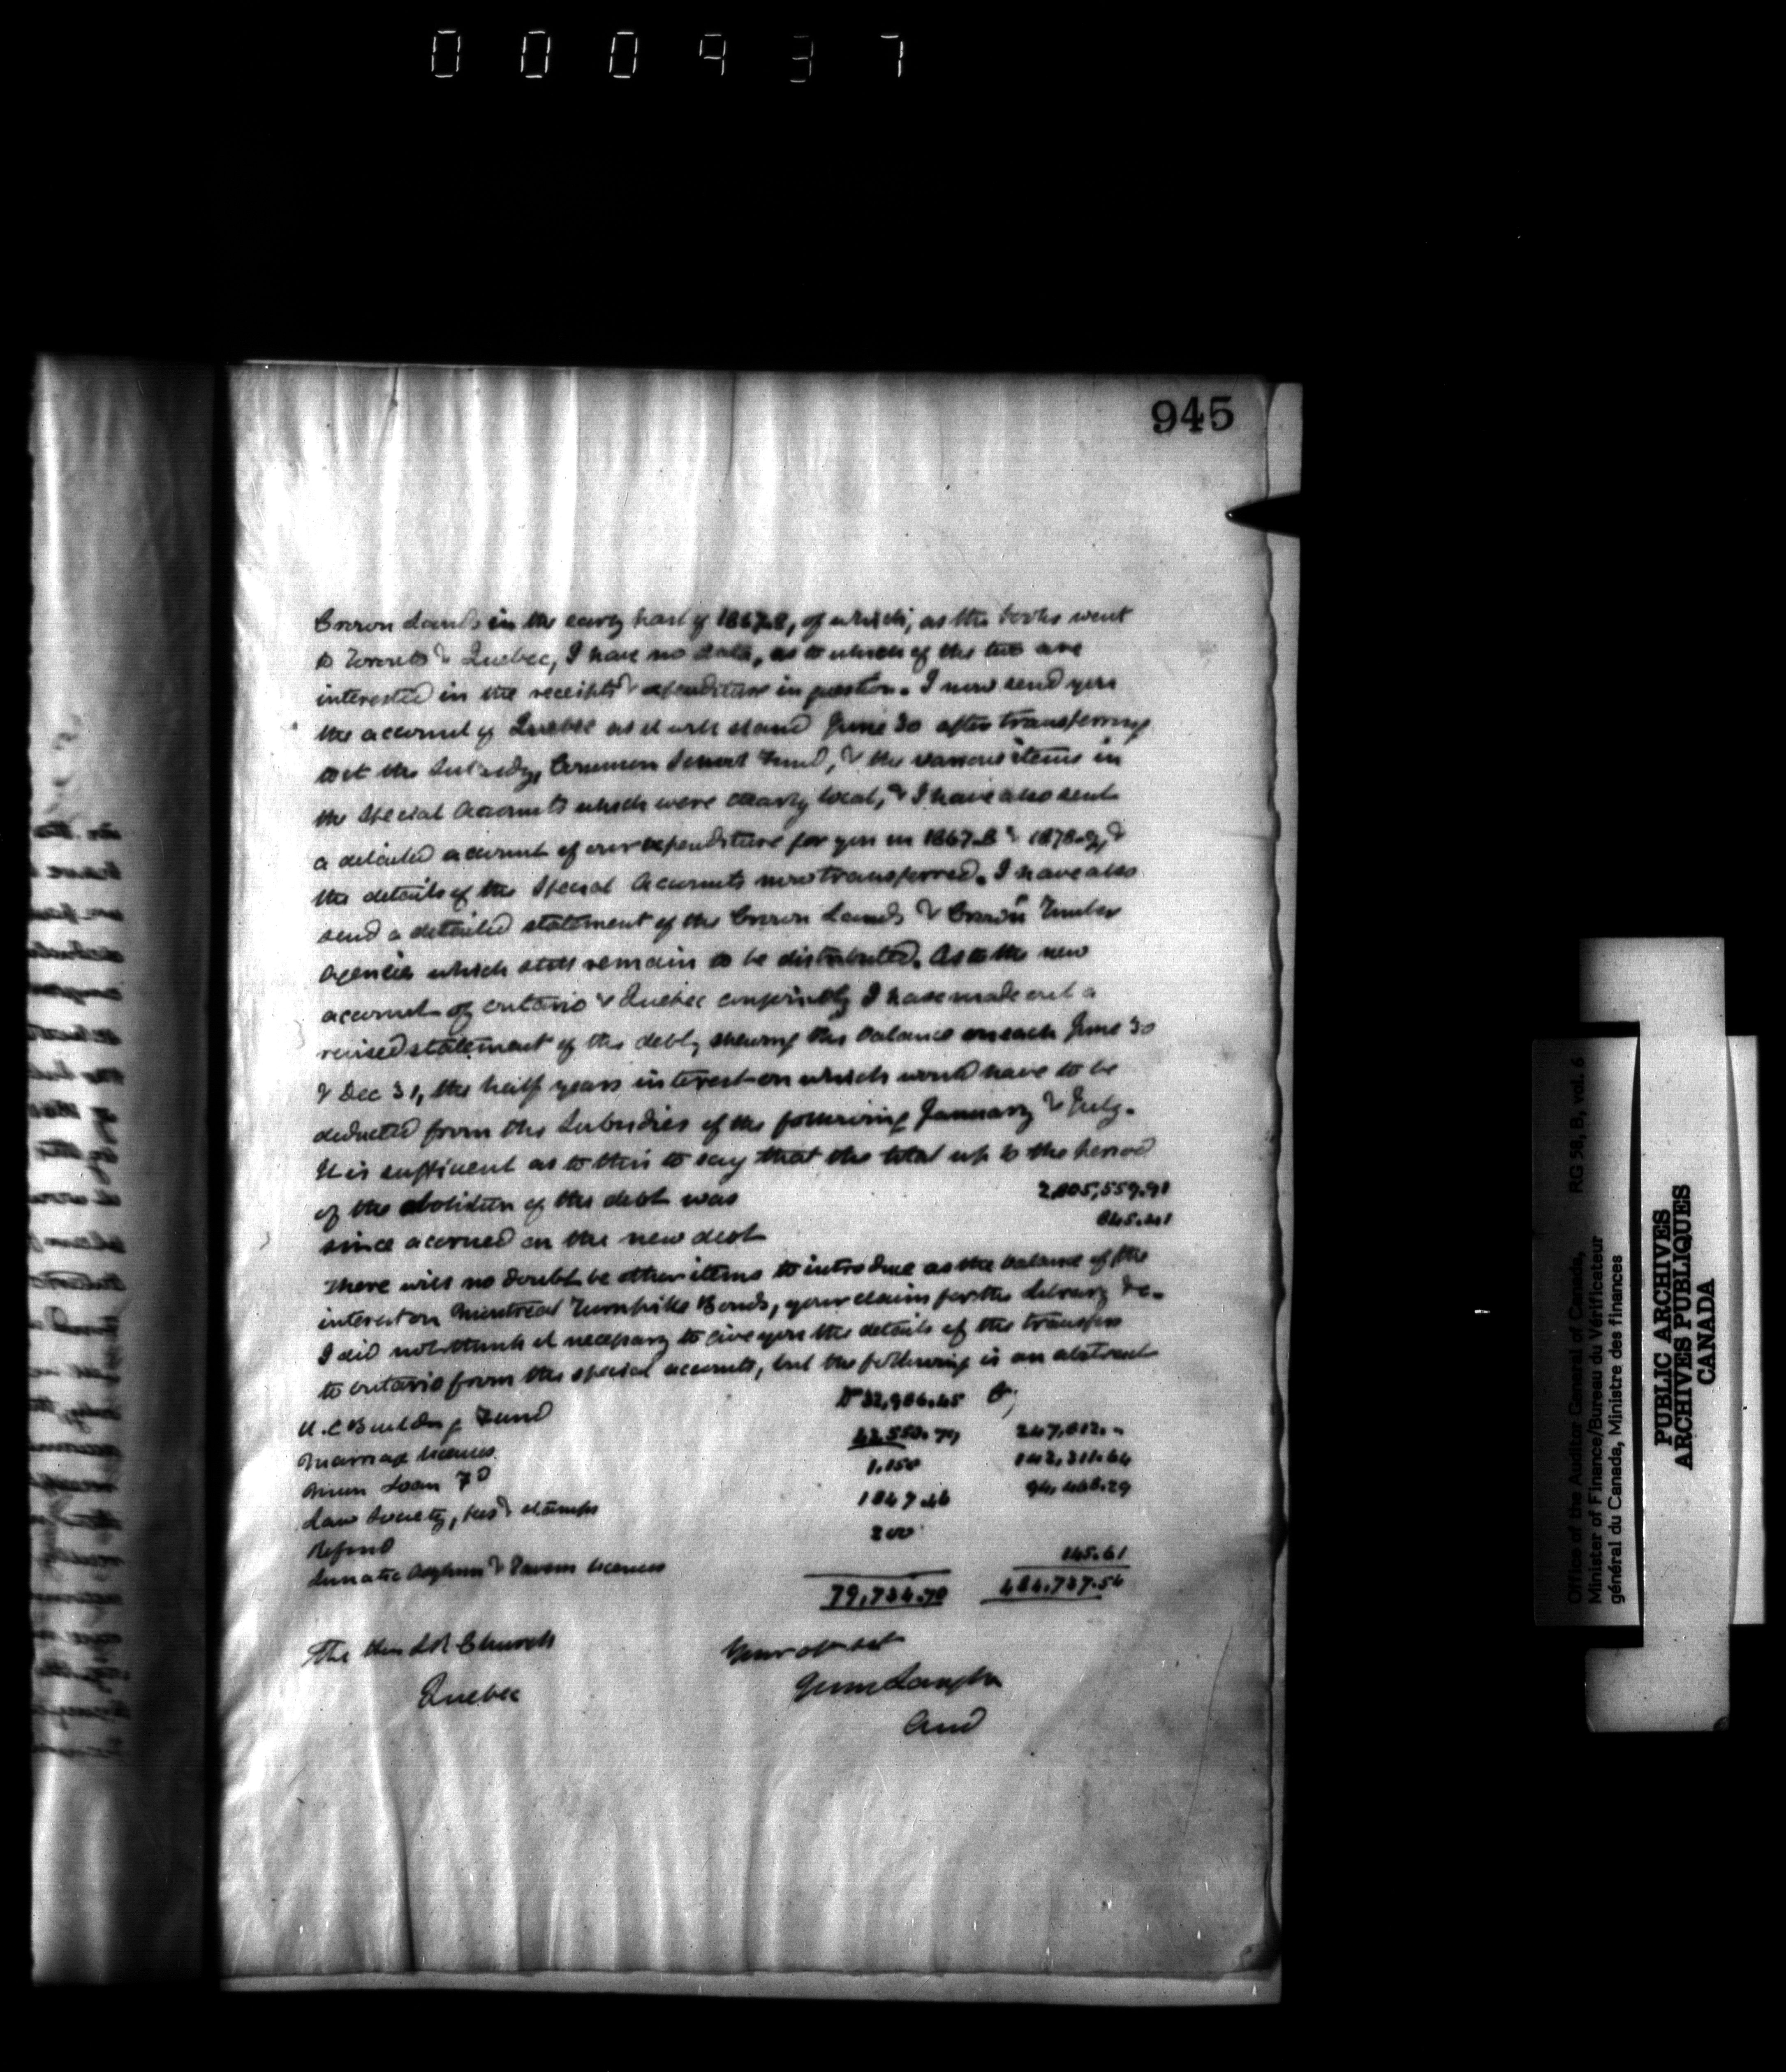 000937
945
Crown Lands in the early part of 1867-8, of which, as the books went
to Toronto & Quebec, I have no data, as to which of the two are
interested in the receipts & expenditure in question. I now send you
the account of Quebec as it will stand June 30 after transferring
to it the Subsidy, Common School Fund, & the various items in
the Special Accounts which were clearly local, & I have also sent
a detailed account of our expenditure for you in 1867-8 & 1878-9, &
the details of the Special Accounts now transferred. I have also
send a detailed statement of the Crown Lands & Crown Timber
Agencies which still remain to be distributed. As to the new
account of Ontario & Quebec conjointly I have made out a
revised statement of the debt, shewing the balance on each June 30
& Dec 31, the half years interest on which would have to be
deducted from the Subsidies of the following January & July.
It is sufficient as to this to say that the total up to the period
of the abolition of the debt was 2,005,559.91
since accrued on the new debt
There will no doubt be other items to introduce as the balance of the
interest on Montreal Turnpike Bonds, your claim for the Library &c.
I did not think it necessary to give you the details of the transfers
to Ontario from the special accounts, but the following is an abstract
U.C Building Fund Dr 32,986.45 Cr
Marriage licenses 247,812.-
Mun Loan Fd 1.150 142,311.64
Law Society, fees & stamps 1847.46 94,468.29
Refund 200
Lunatic Asylum & Tavern licenses 145.61
79,734.70 484,737.54
The Hon L R Church Your ob set
Quebec John Langton
Aud
Office of the Auditor General of Canada, RG 58, B, vol. 6
Minister of Finance/Bureau du Vérificateur
général du Canada, Ministre des finances
PUBLIC ARCHIVES
ARCHIVES PUBLIQUES
CANADA